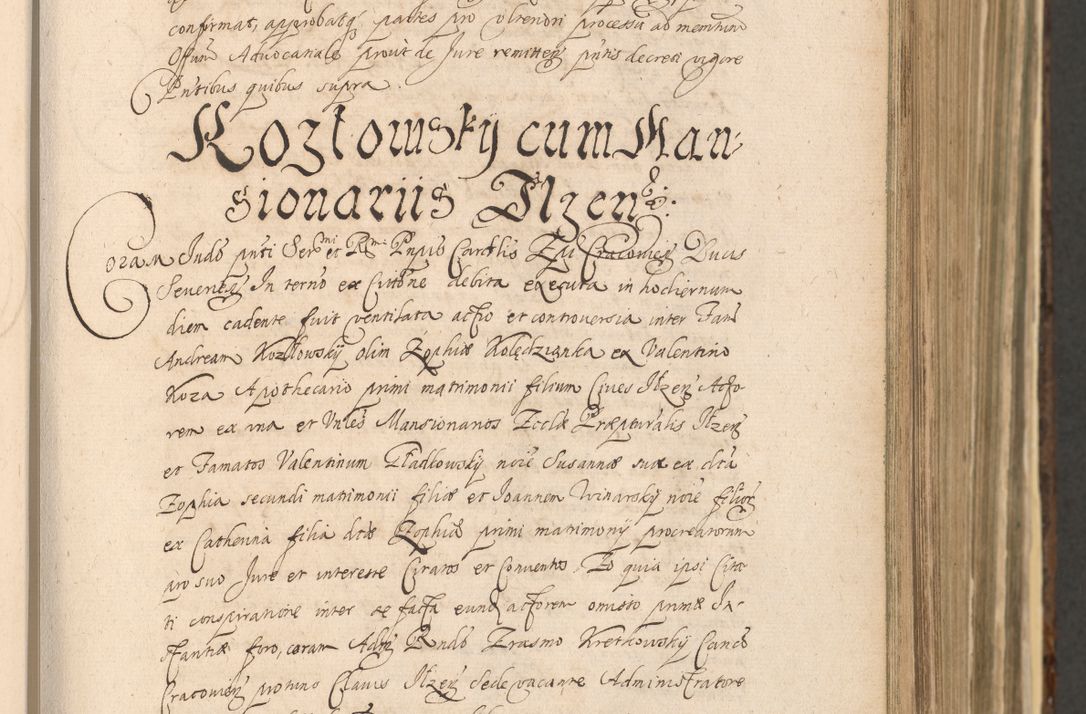 confirmat, approbatq3 partes pro ulteriori processu ad memtum
Offium Advocatiale prout de Jure remitten pntis decreti vigore
Pntibus quibus supra.
Kozłowskÿ cum Man:
sionariis Ilzen:
Coram Judō pnti Sermi et Rmi Pnpis Cardlis Epi Cracovien Ducis
Severien In termō ex Cittōne debita executa in hodiernum
diem cadente fuit ventilata actio et controversia inter Fam
Andream Kozłłowskÿ olim Zophiæ Kolędzianka ex Valentino
Koza Apothecario primi matrimonii filium Cives Ilzen Acto-
rem ex una et Vnles Mansionarios Ecclæ Præpturalis Ilzen
et Famatos Valentinum Gładkowskÿ noīe Susannæ suæ ex dcta
Zophia secundi matrimonii filiæ et Joannem Winarskÿ noīe filior
ex Catherina filia dctæ Zophiæ primi matrimonÿ procreatorum
pro suo Jure et interesse Citatos et Conventos. Eo quia ipsi Cita
ti conspiratione inter se facta eund actorem omisso primæ In-
stantiæ foro, coram Adm Rndo Erasmo Kretkowskÿ Canco
Cracovien protunc Clavis Ilzen sede vacante Administratore